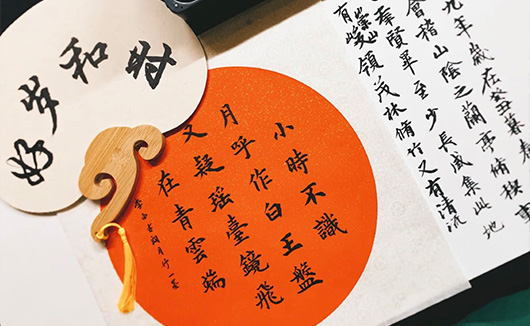 好岁和
小時不識
月乎作白王盤
又疑瑶臺鏡飛
在青雲端
九年歲在癸丑暮春
會稽山陰之蘭亭脩禊事
羣賢畢至少長咸集此地
有崇山峻領茂林脩竹又有清流